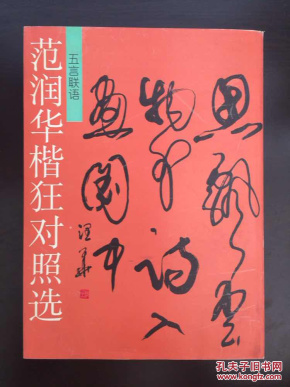 五言联语
范润华楷狂对照选
思飘云
物外诗入
画图中
润华
孔夫子旧书网